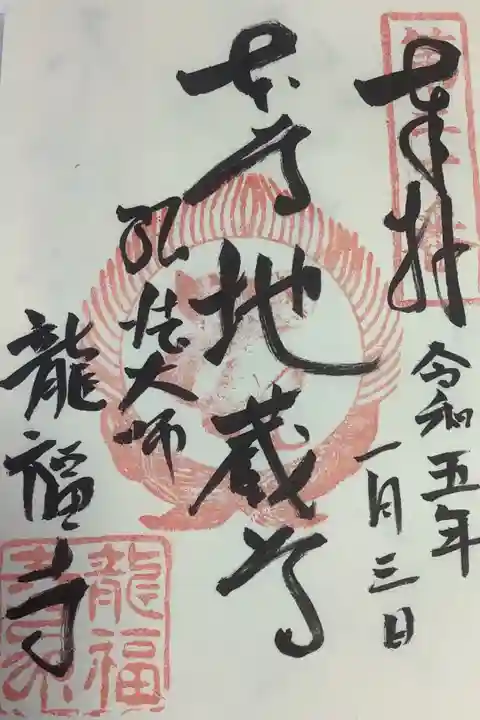 奉拝
令和五年
一月三日
本尊
地蔵尊
弘法大師
龍福寺
龍福